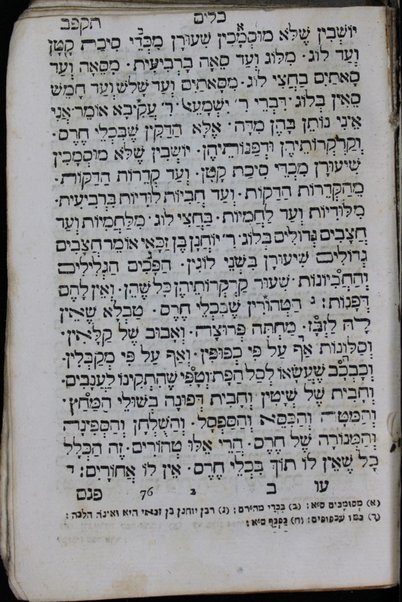 כלים
הקפב
יושבין שלא מוסמכין שעורן מכדי סיכת קטן
ועד לוג. מלוג ועד סאה ברביעית. מסאה ועד
סאתים בחצי לוג. מסאתים ועד שלש ועד חמש
סאין בלוג. דברי ר' ישמעאל. ר' עקיבא אומר אני
איני נותן בהן מדה. אלא הדקין שבכלי חרס.
וקרקרותיהן ודפנותיהן. יושבין שלא מוסמכין
שיעורן מכדי סיכת קטן. ועד קדרות הדקות.
מהקדרות הדקות. ועד חביות לודיות ברביעית.
מלודיות ועד לחמיות. בחצי לוג. מלחמיות ועד
חצבים גדולים בלוג. ר' יוחנן בן זכאי אומר חצבים
גדולים שיעורן בשני לוגין. הפכים הגלילים
והחביונות. שעור קרקרותיהן כל שהן. ואין להם
דפנות: ג הטהורין שבכלי חרס. טבלא שאין
לה לזבז. מחתה פרוצה. ואבוב של קלאין.
וסלונות אף על פי כפופין. ואף על פי מקבלין.
וכבכב שעשאו לכל הפת וטפי שהתקינו לענבים.
וחבית של שיטין וחבית דפונה בשולי המחץ.
והמטה והכסא והספסל. והשלחן והספינה.
והמנורה של חרס. הרי אלו טהורים. זה הכלל
כל שאין לו תוך בכלי חרס. אין לו אחורים: ד
עו ב 76 2 פנס
(א) מסומכים ס״א: (ב) בכדי מהר״ם: (ג) רבן יוחנן בן זכאי היא ואינה הלכה:
(ד) כמו עכפופים: (ה) בכנף ס״א: